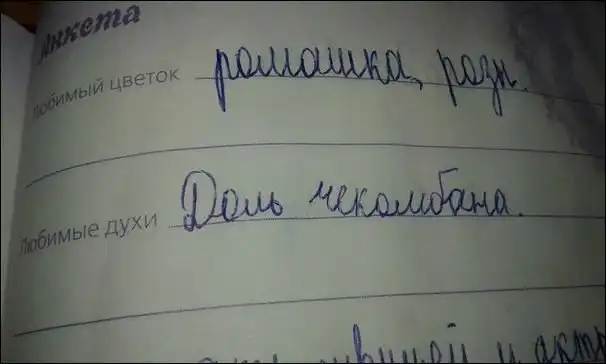 Анкета
Любимый цветок ромашка, разн.
Любимые духи Доль чекомбана.
и акты